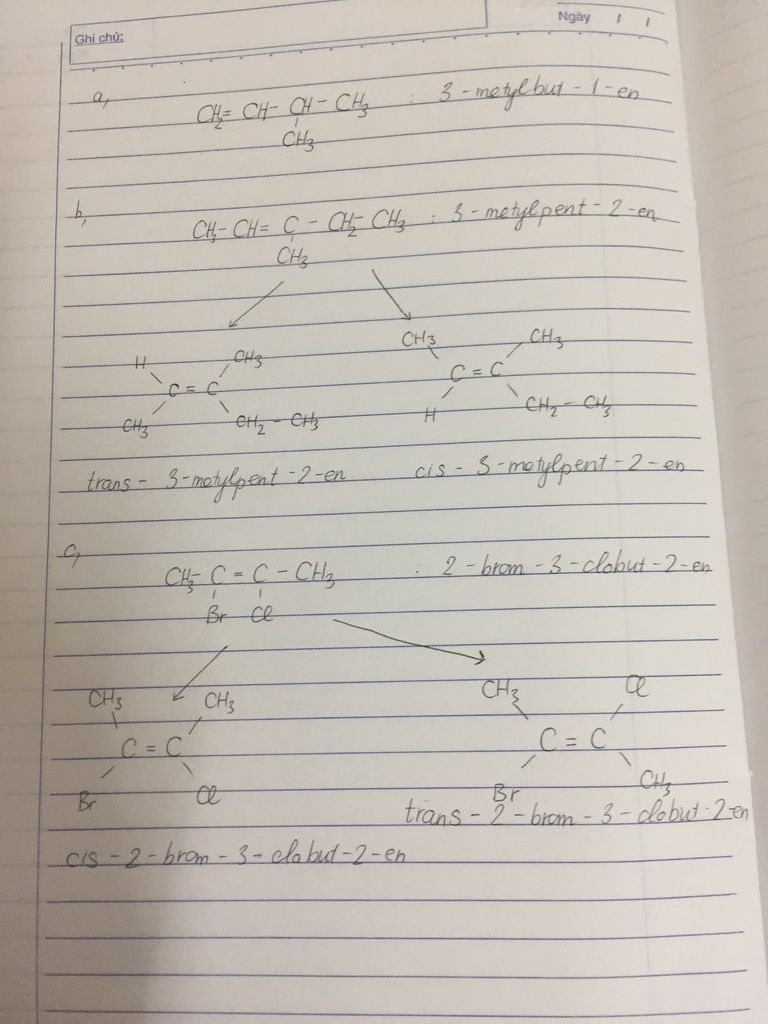 Ghi chú:
Ngày / /
a, CH2= CH- CH- CH3 : 3-metylbut-1-en
CH3
b, CH3- CH= C - CH2- CH3 : 3-metylpent-2-en
CH3
H CH3 CH3 CH3
C = C C = C
CH3 CH2 - CH3 H CH2 - CH3
trans - 3-metylpent-2-en cis - 3-metylpent-2-en
c, CH3- C = C - CH3 : 2-brom-3-clobut-2-en
Br Cl
CH3 CH3 CH3 Cl
C = C C = C
Br Cl Br CH3
trans-2-brom-3-clobut-2-en
cis-2-brom-3-clobut-2-en